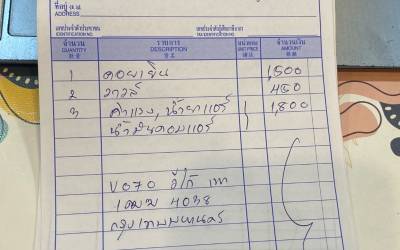 ที่อยู่ 住址
ADDRESS
เลขประจำตัวประชาชน
IDENTIFICATION NO.
เลขประจำตัวผู้เสียภาษีอากร
จำนวน
QUANTITY
รายการ
DESCRIPTION
หน่วยละ
UNIT PRICE
จำนวนเงิน
AMOUNT
1 คอยเย็น 1,500
2 วาวล์ 450
3 ค่าแรง, น้ำยาแอร์ 1,800
น้ำมันคอมแอร์
VO70 อีโก้
4038
กรุงเทพมหานคร